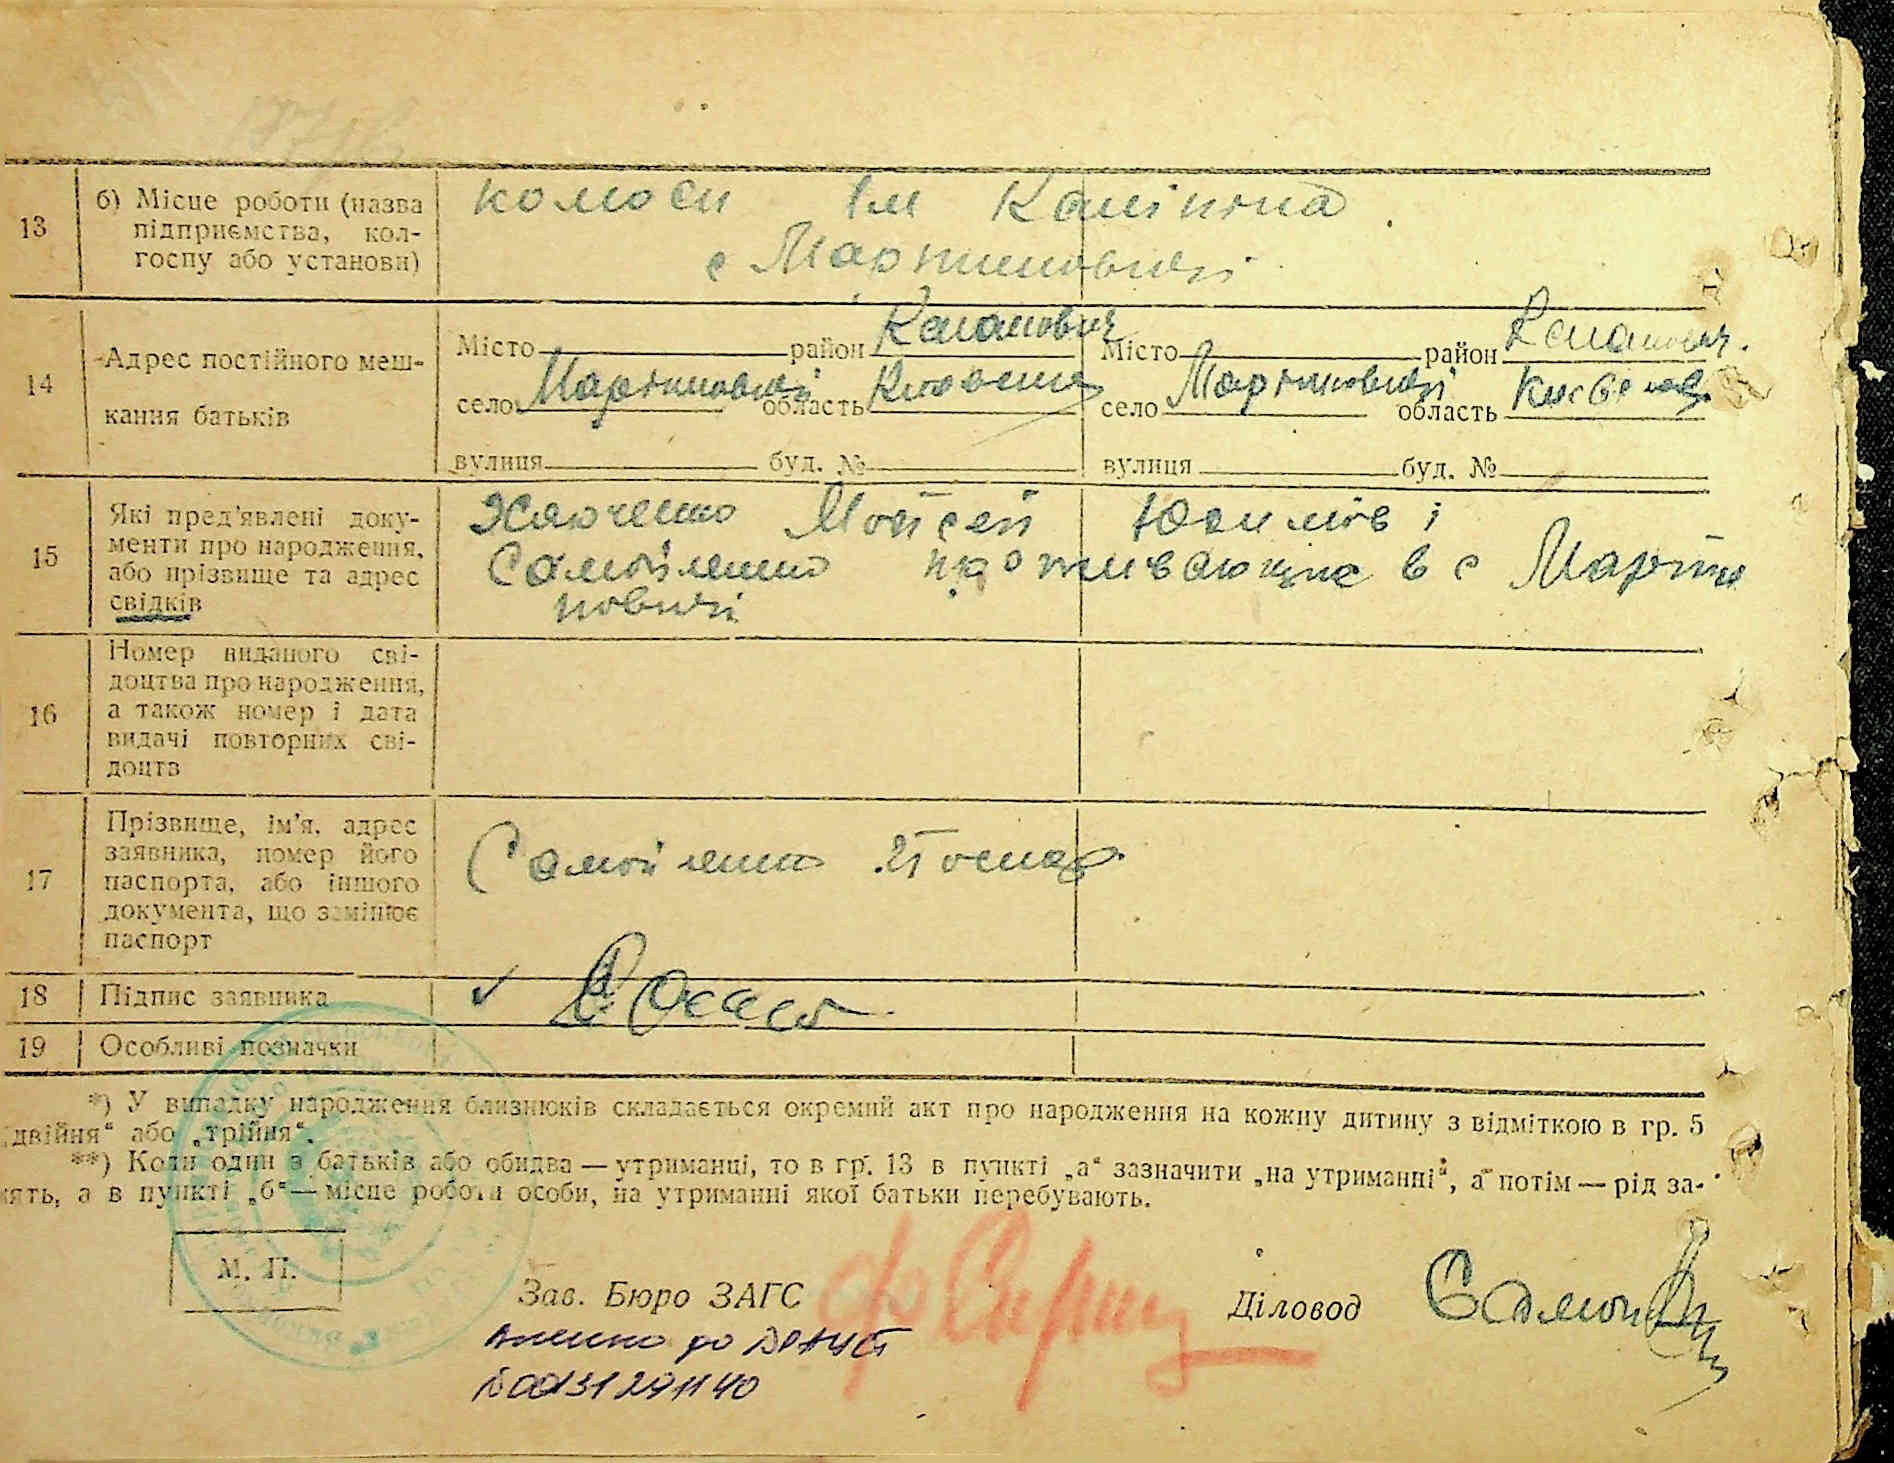 13 б) Місце роботи (назва
підприємства, кол-
госпу або установи)
колгосп ім Калініна
с Мартиновичі
14 Адрес постійного меш-
кання батьків
Місто район Каганович Місто район Каганович.
село Мартиновичі область Київська село Мартиновичі область Київська
вулиця буд. № вулиця буд. №
15 Які пред'явлені доку-
менти про народження,
або прізвище та адрес
свідків
Мойсей Юхимов і
Самойленко проживающие в с Марти
новичі
16 Номер виданого сві-
доцтва про народження,
а також номер і дата
видачі повторних сві-
доцтв
17 Прізвище, ім'я, адрес
заявника, номер його
паспорта, або іншого
документа, що замінює
паспорт
Самойленко
18 Підпис заявника
19 Особливі позначки
*) У випадку народження близнюків складається окремий акт про народження на кожну дитину з відміткою в гр. 5
двійня“ або „трійня“.
**) Коли один з батьків або обидва — утриманці, то в гр. 13 в пункті „а“ зазначити „на утриманні“, а потім — рід за-
нять, а в пункті „б“ — місце роботи особи, на утриманні якої батьки перебувають.
М. П.
Зав. Бюро ЗАГС
Діловод
до ДРАЦСГ
00131291140